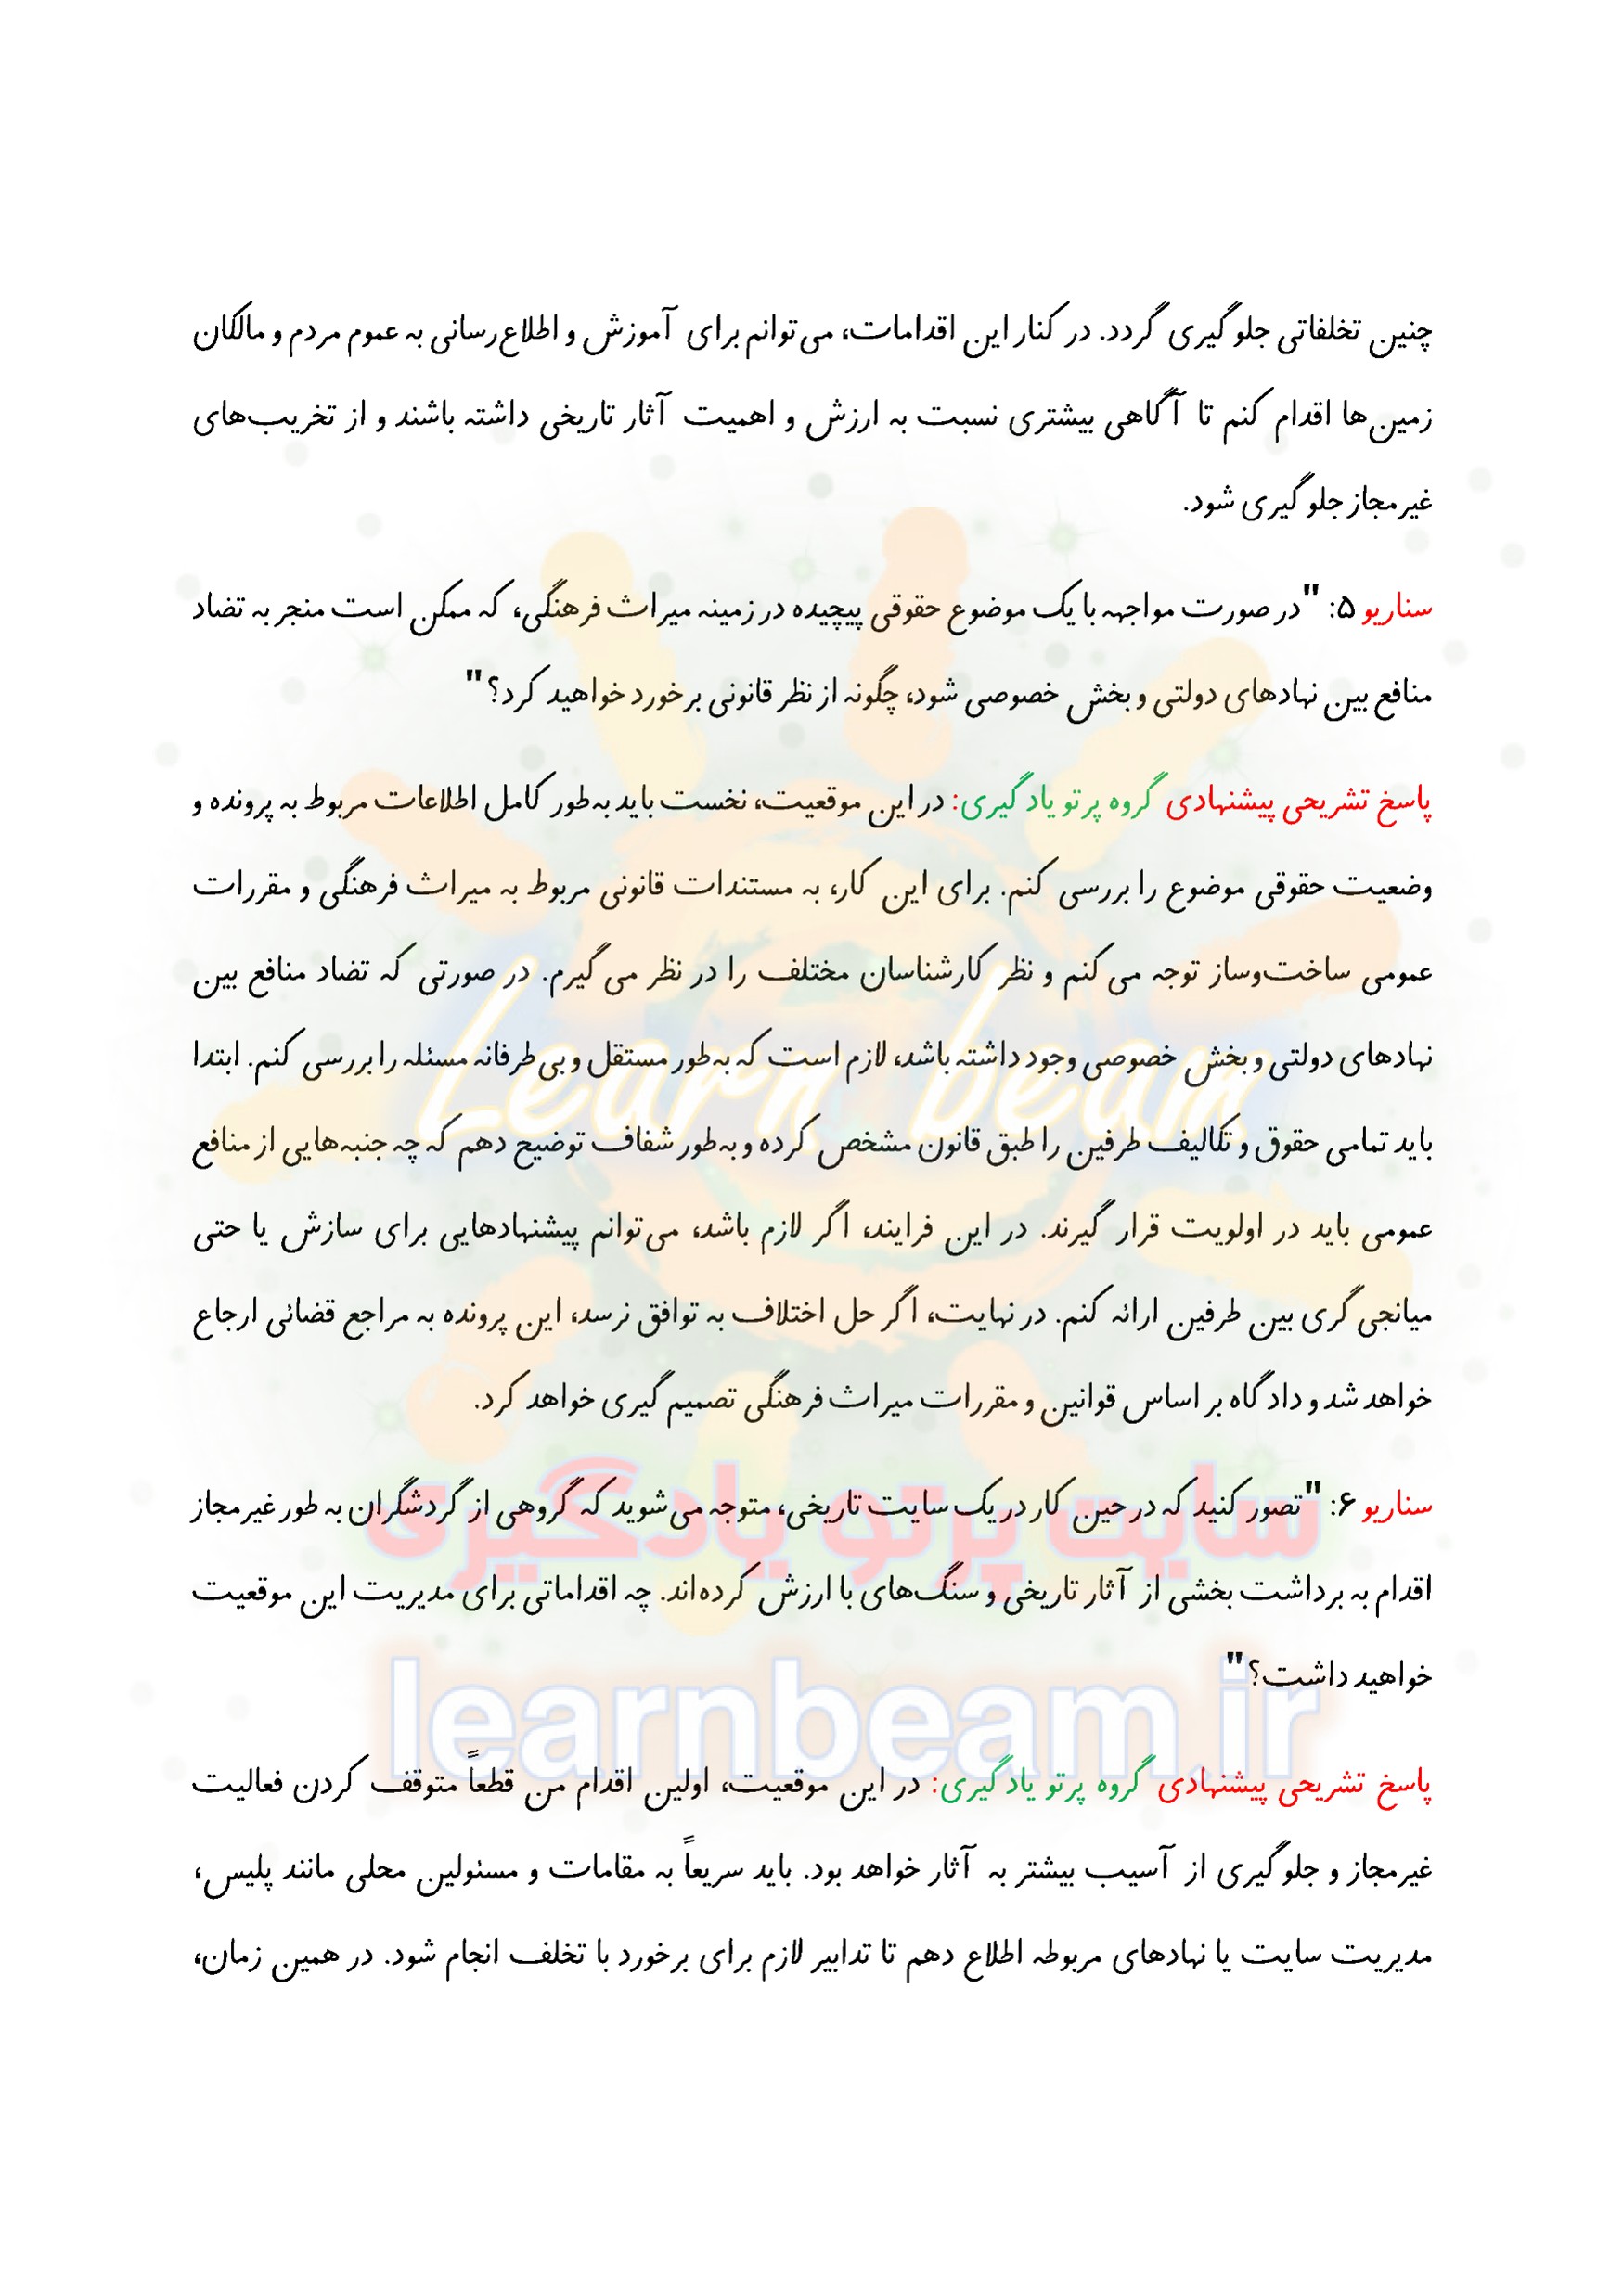 چنین تخلفاتی جلوگیری گردد. در کنار این اقدامات، می‌توانم برای آموزش و اطلاع‌رسانی به عموم مردم و مالکان
زمین‌ها اقدام کنم تا آگاهی بیشتری نسبت به ارزش و اهمیت آثار تاریخی داشته باشند و از تخریب‌های
غیرمجاز جلوگیری شود.
سناریو ۵: "در صورت مواجهه با یک موضوع حقوقی پیچیده در زمینه میراث فرهنگی، که ممکن است منجر به تضاد
منافع بین نهادهای دولتی و بخش خصوصی شود، چگونه از نظر قانونی برخورد خواهید کرد؟"
پاسخ تشریحی پیشنهادی گروه پرتو یادگیری: در این موقعیت، نخست باید به‌طور کامل اطلاعات مربوط به پرونده و
وضعیت حقوقی موضوع را بررسی کنم. برای این کار، به مستندات قانونی مربوط به میراث فرهنگی و مقررات
عمومی ساخت‌وساز توجه می‌کنم و نظر کارشناسان مختلف را در نظر می‌گیرم. در صورتی که تضاد منافع بین
نهادهای دولتی و بخش خصوصی وجود داشته باشد، لازم است که به‌طور مستقل و بی‌طرفانه مسئله را بررسی کنم. ابتدا
باید تمامی حقوق و تکالیف طرفین را طبق قانون مشخص کرده و به‌طور شفاف توضیح دهم که چه جنبه‌هایی از منافع
عمومی باید در اولویت قرار گیرند. در این فرایند، اگر لازم باشد، می‌توانم پیشنهادهایی برای سازش یا حتی
میانجی‌گری بین طرفین ارائه کنم. در نهایت، اگر حل اختلاف به توافق نرسد، این پرونده به مراجع قضائی ارجاع
خواهد شد و دادگاه بر اساس قوانین و مقررات میراث فرهنگی تصمیم‌گیری خواهد کرد.
سناریو ۶: "تصور کنید که در حین کار در یک سایت تاریخی، متوجه می‌شوید که گروهی از گردشگران به طور غیرمجاز
اقدام به برداشت بخشی از آثار تاریخی و سنگ‌های با ارزش کرده‌اند. چه اقداماتی برای مدیریت این موقعیت
خواهید داشت؟"
پاسخ تشریحی پیشنهادی گروه پرتو یادگیری: در این موقعیت، اولین اقدام من قطعاً متوقف کردن فعالیت
غیرمجاز و جلوگیری از آسیب بیشتر به آثار خواهد بود. باید سریعاً به مقامات و مسئولین محلی مانند پلیس،
مدیریت سایت یا نهادهای مربوطه اطلاع دهم تا تدابیر لازم برای برخورد با تخلف انجام شود. در همین زمان،
Learn beam
سایت پرتو یادگیری
learnbeam.ir